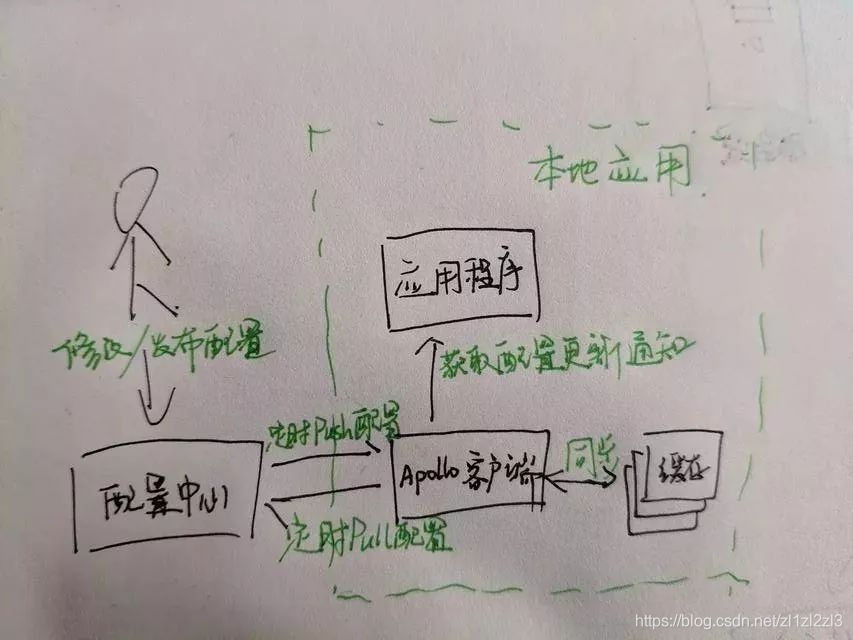 本地应用
应用程序
修改/发布配置
获取配置更新通知
定时Push配置
配置中心
Apollo客户端
同步
缓存
定时Pull配置
https://blog.csdn.net/zl1zl2zl3